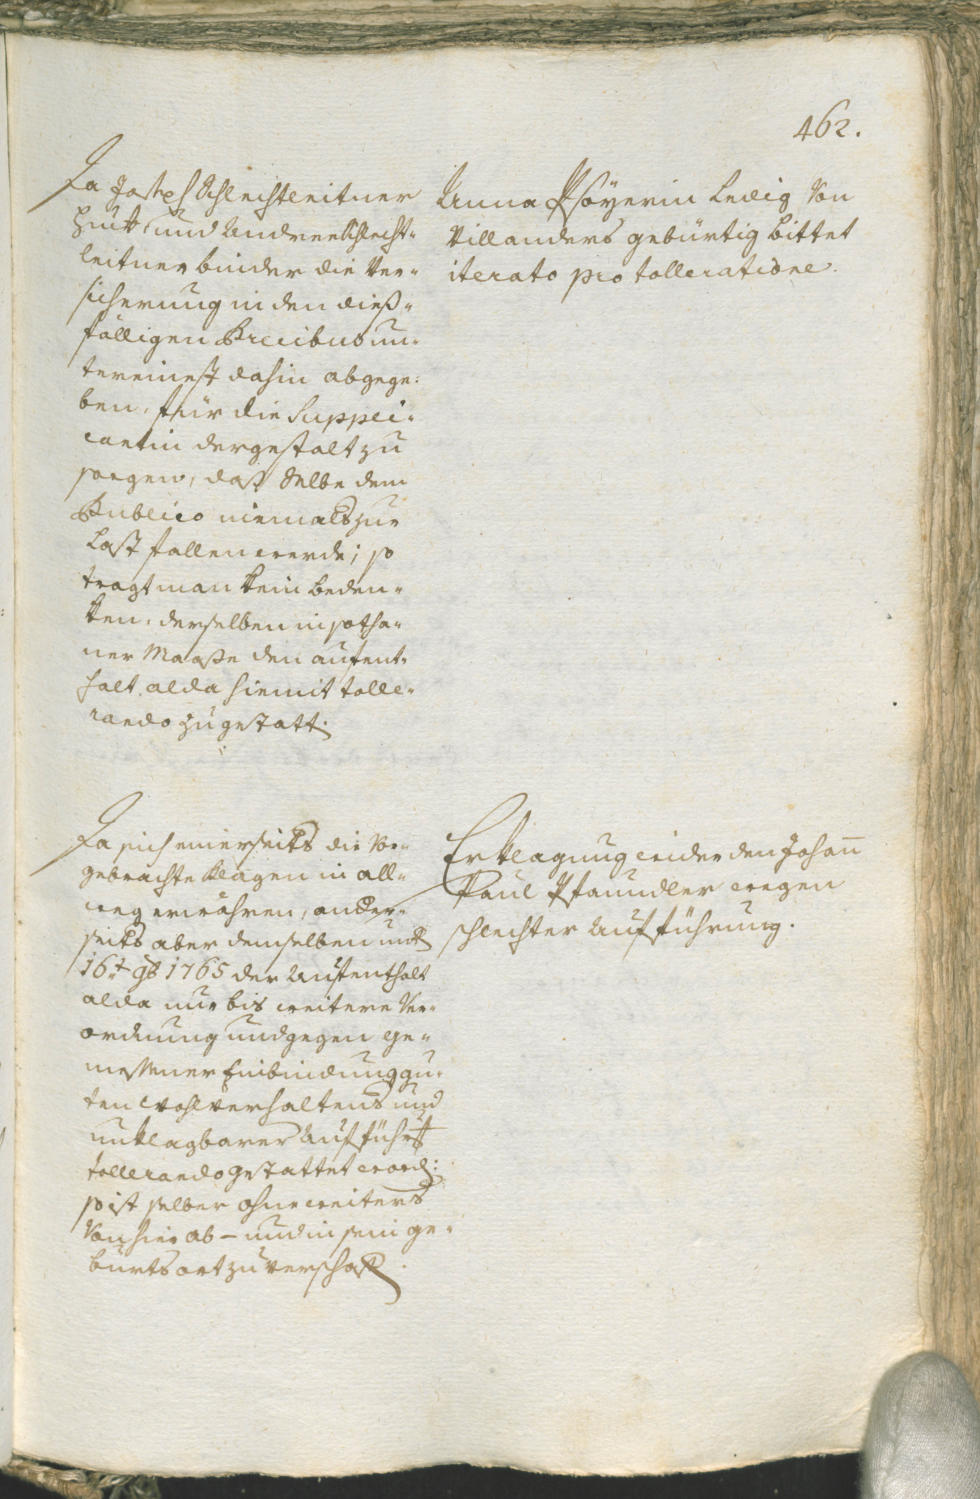 462.
Da Joseph Schlechtleitner
Huet- und Andree Schlecht-
leitner binder die Ver-
sicherung in den dieß-
fälligen Precibus un-
tereinest dahin abgege-
ben, für die Suppli-
cantin dergestalt zu
sorgen, daß Selbe dem
Publico niemals zur
Last fallen werde; so
tragt man kein beden-
ken, derselben in sotha-
ner Maaße den aufent-
halt alda hiemit tolle-
rando zu gestatt.
Anna Psöyerin Ledig Von
Villanders gebürtig bittet
iterato pro tolleratione.
Da sich einerseits die Vor-
gebrachte klagen in all-
weg erwahren, ander-
seits aber demselben unt
16t 9b 1765 der Aufenthalt
alda nur bis weitere Ver-
ordnung und gegen ge-
messener Einbindung gu-
ten wohlverhaltens und
unklagbarer Aufführ
tollerando gestattet word:
so ist selber ohne weiters
Von hier ab - und in sein ge-
burts ort zu verschaff.
Erklagung wider den Johan̅
Paul Pfaundler wegen
schlechter Aufführung.